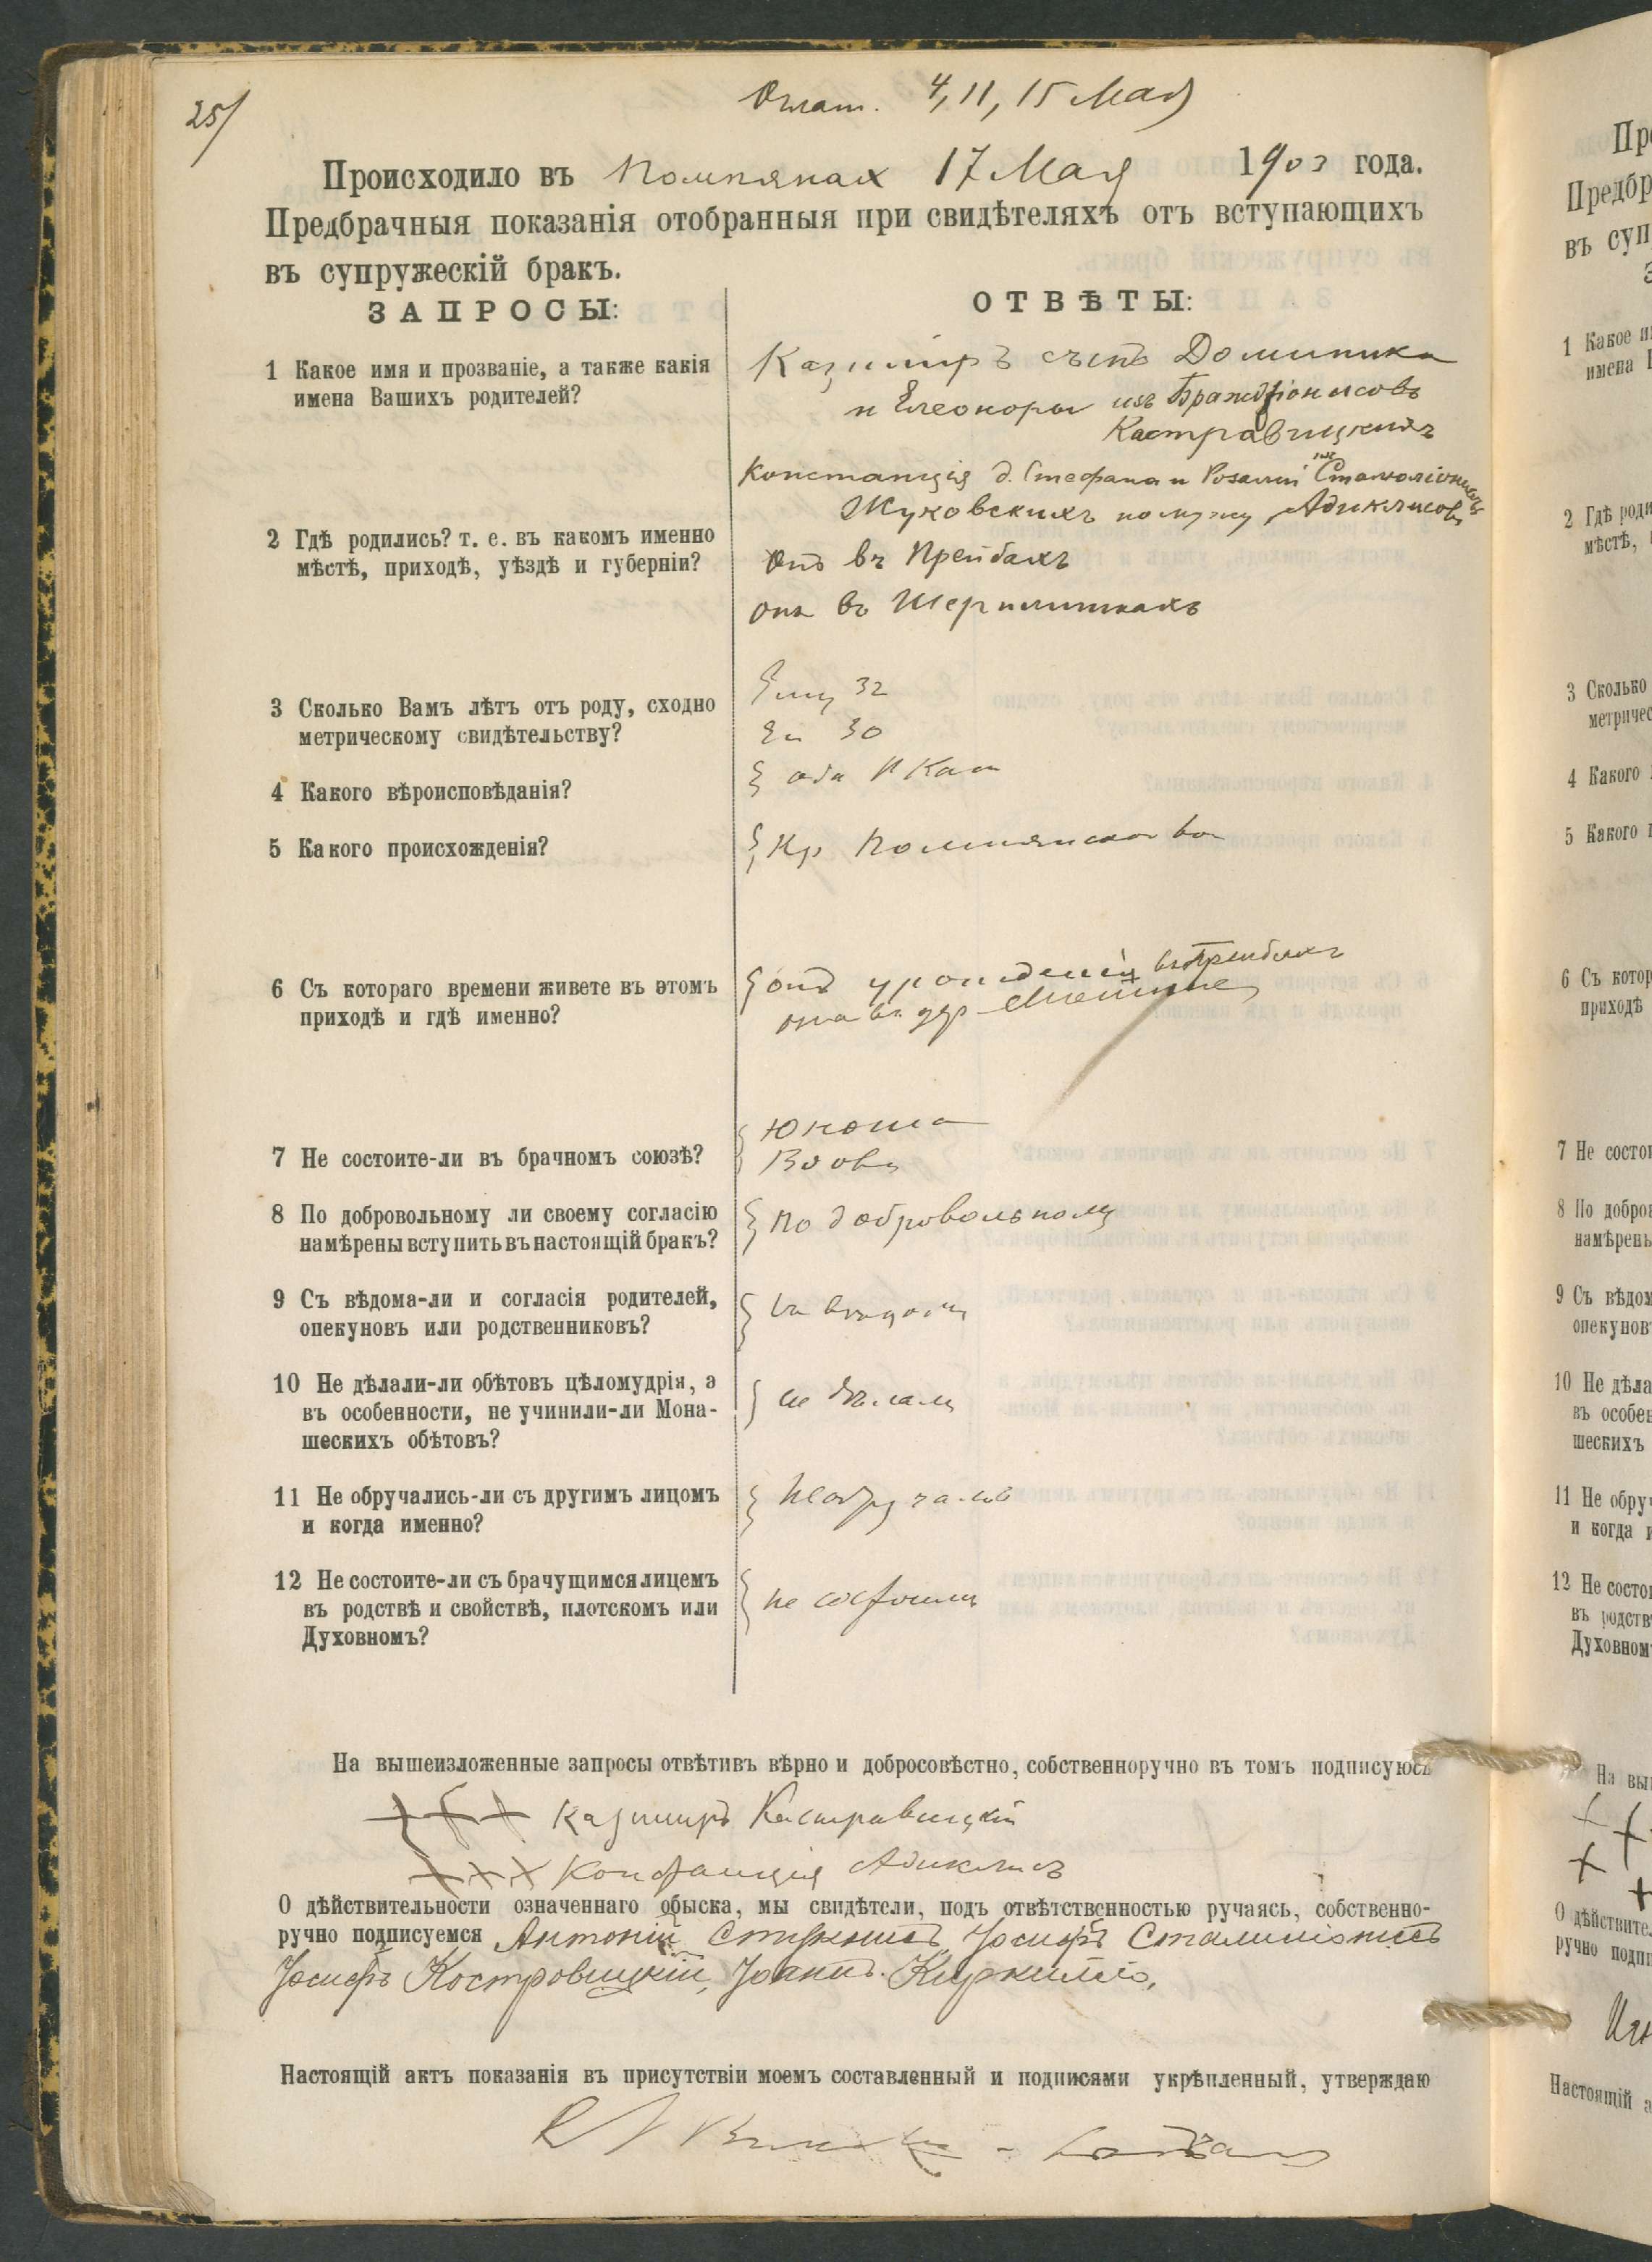 25/
Оглаш. 4, 11, 15 Мая
Происходило въ Помпянах 17 Мая 1903 года.
Предбрачныя показанія отобранныя при свидѣтеляхъ отъ вступающихъ
въ супружескій бракъ.
ЗАПРОСЫ:
ОТВѢТЫ:
1 Какое имя и прозваніе, а также какія
имена Вашихъ родителей?
Казимиръ сынъ Доминика
и Елеоноры изъ
Кастравицкихъ
Констанція д. Стефана и Розаліи изъ
Жуковскихъ по мужу Адиклисовъ
2 Гдѣ родились? т. е. въ какомъ именно
мѣстѣ, приходѣ, уѣздѣ и губерніи?
Онъ въ Прейбахъ
она въ
3 Сколько Вамъ лѣтъ отъ роду, сходно
метрическому свидѣтельству?
Ему 32
Ей 30
4 Какого вѣроисповѣданія?
оба Р Кат
5 Какого происхожденія?
Кр Помпянской вол
6 Съ котораго времени живете въ этомъ
приходѣ и гдѣ именно?
онъ въ Прейбахъ
она въ дер
7 Не состоите-ли въ брачномъ союзѣ?
Юноша
Вдова
8 По добровольному ли своему согласію
намѣрены вступить въ настоящій бракъ?
По добровольному
9 Съ вѣдома-ли и согласія родителей,
опекуновъ или родственниковъ?
Съ вѣдома
10 Не дѣлали-ли обѣтовъ цѣломудрія, а
въ особенности, не учинили-ли Мона-
шескихъ обѣтовъ?
не дѣлали
11 Не обручались-ли съ другимъ лицомъ
и когда именно?
Не обручались
12 Не состоите-ли съ брачущимся лицемъ
въ родствѣ и свойствѣ, плотскомъ или
Духовномъ?
не состоимъ
На вышеизложенные запросы отвѣтивъ вѣрно и добросовѣстно, собственноручно въ томъ подписуюсь
+++ Казимиръ Кастравицкій
+++ Констанція Адиклисъ
О дѣйствительности означеннаго обыска, мы свидѣтели, подъ отвѣтственностью ручаясь, собственно-
ручно подписуемся Антоній Іосифъ
Іосифъ Костровицкій, Іоаннъ
Настоящій актъ показанія въ присутствіи моемъ составленный и подписями укрѣпленный, утверждаю